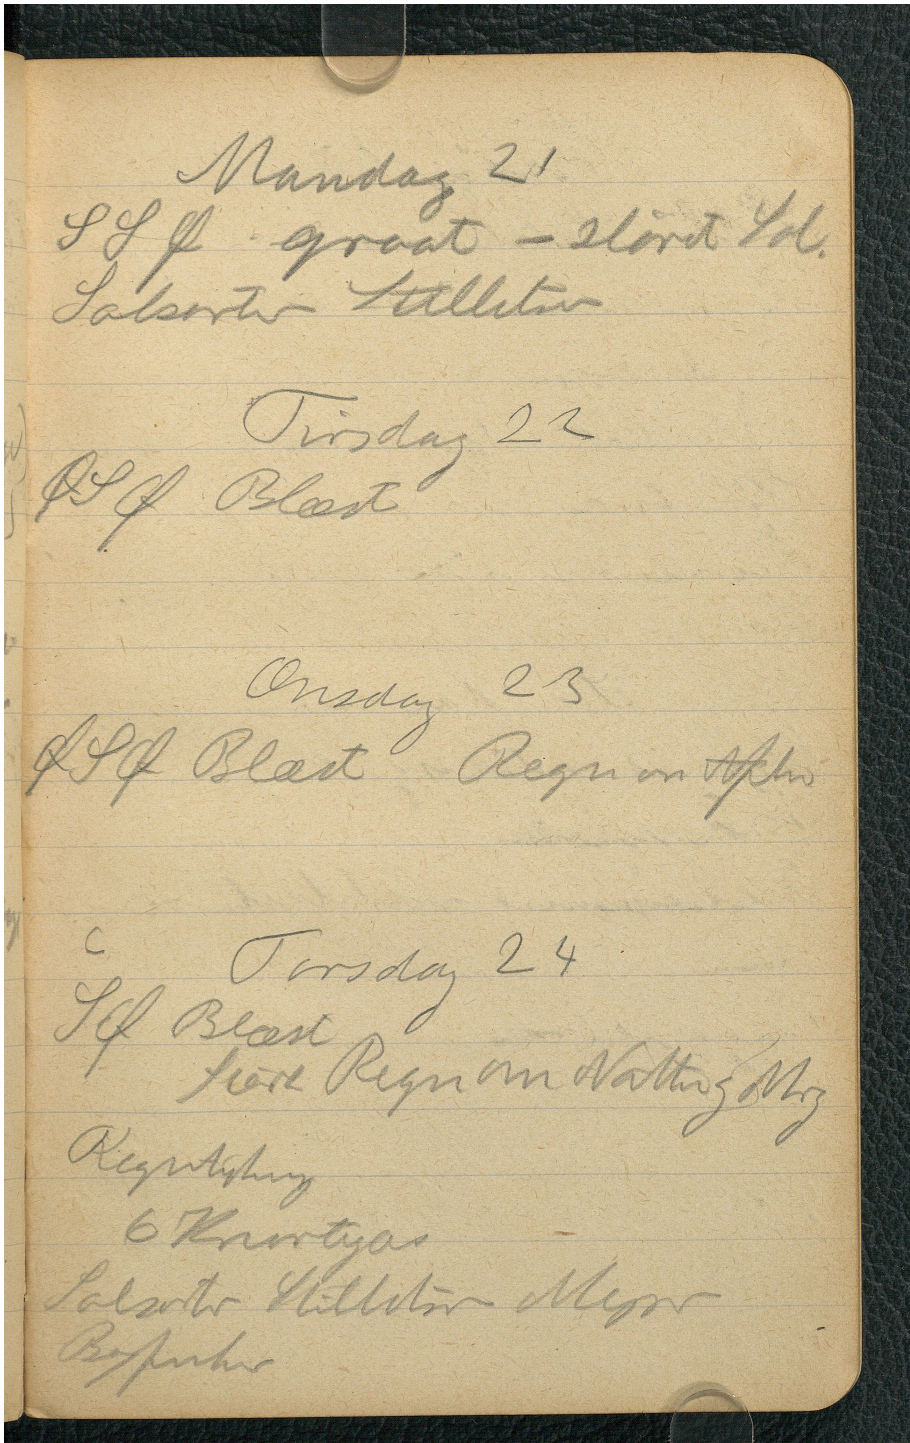 Mandag 21
SSØ graat – sløret Sol.
Solsorter Stillitser
Tirsdag 22
ØSØ Blæst
Onsdag 23
ØSØ Blæst Regn om Aften
C
Torsdag 24
SØ Blæst
Regn om Natten og Mrg
6 Knortgæs
Solsorter Stillitser Mejser
Bogfinker